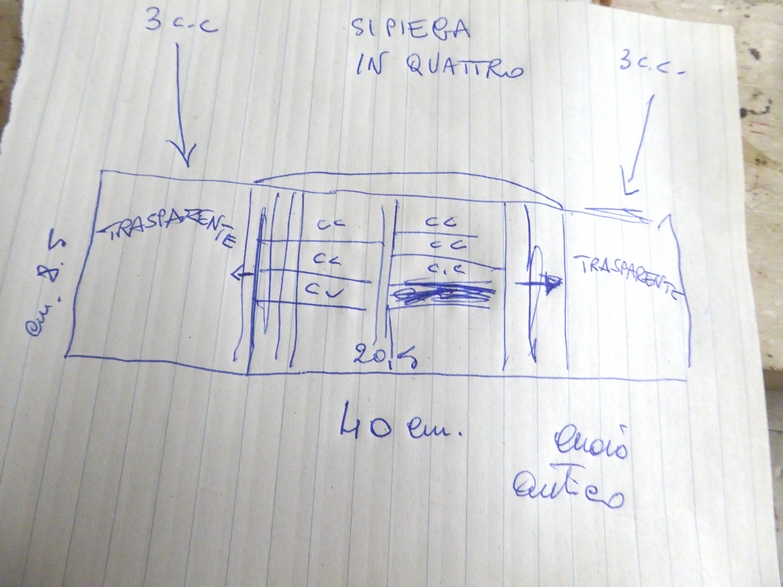 3 c.c
SI PIEGA
IN QUATTRO
3 c.c.
TRASPARENTE
cc
cc
cc
cc
cc
c.c
TRASPARENTE
cm. 8.5
20,5
40 cm.
cuoio
antico